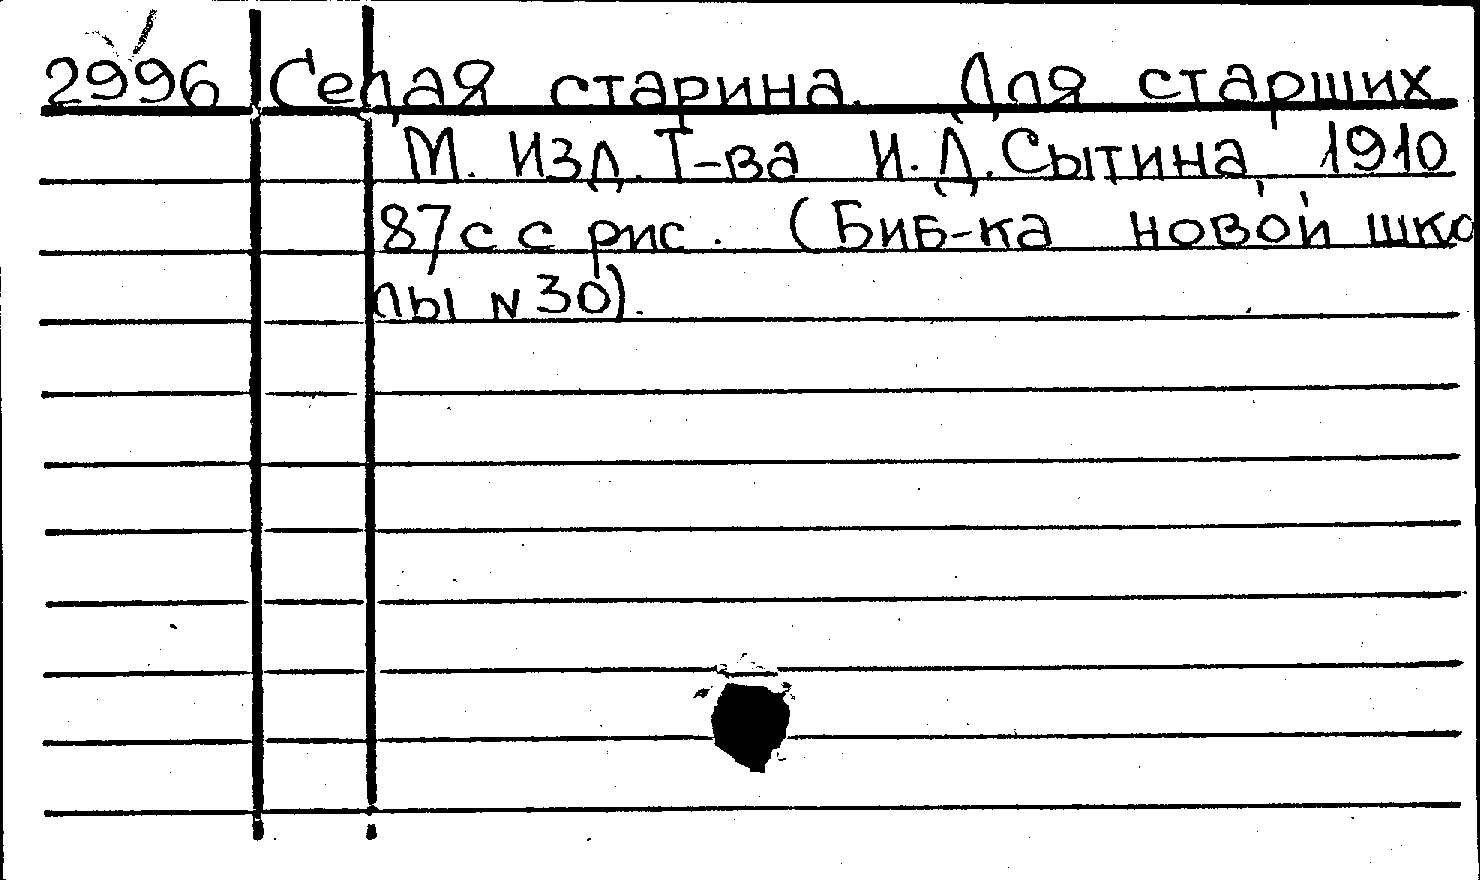 2996 Седая старина. Для старших
М. Изд. Т-ва И.Д.Сытина, 1910
87с с рис. (Биб-ка новой шко
лы N 30).